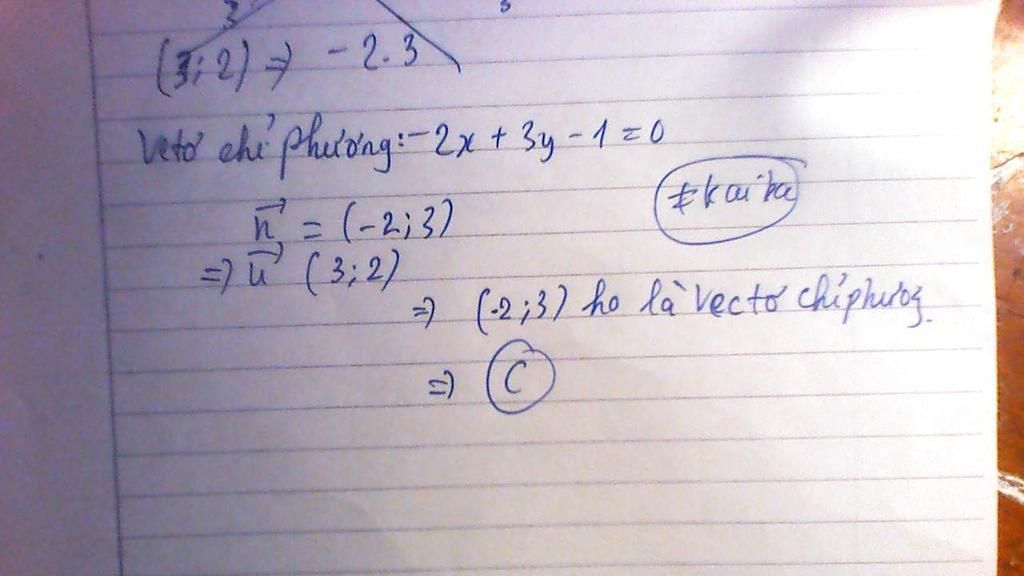 3
(3; 2) => -2.3
Vetơ chỉ phương: -2x + 3y - 1 = 0
n→ = (-2; 3)
=> u→ (3; 2)
=> (-2; 3) ho là vectơ chỉ phương.
=> C